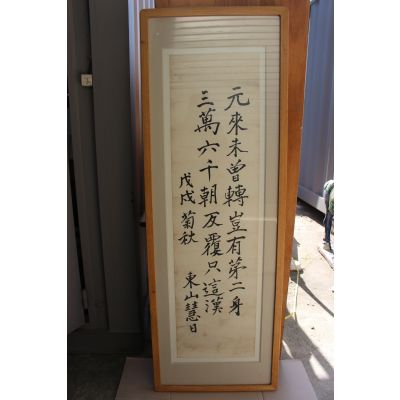 元來未曾轉豈有第二身
三萬六千朝反覆只這漢
戊戌菊秋
東山慧日